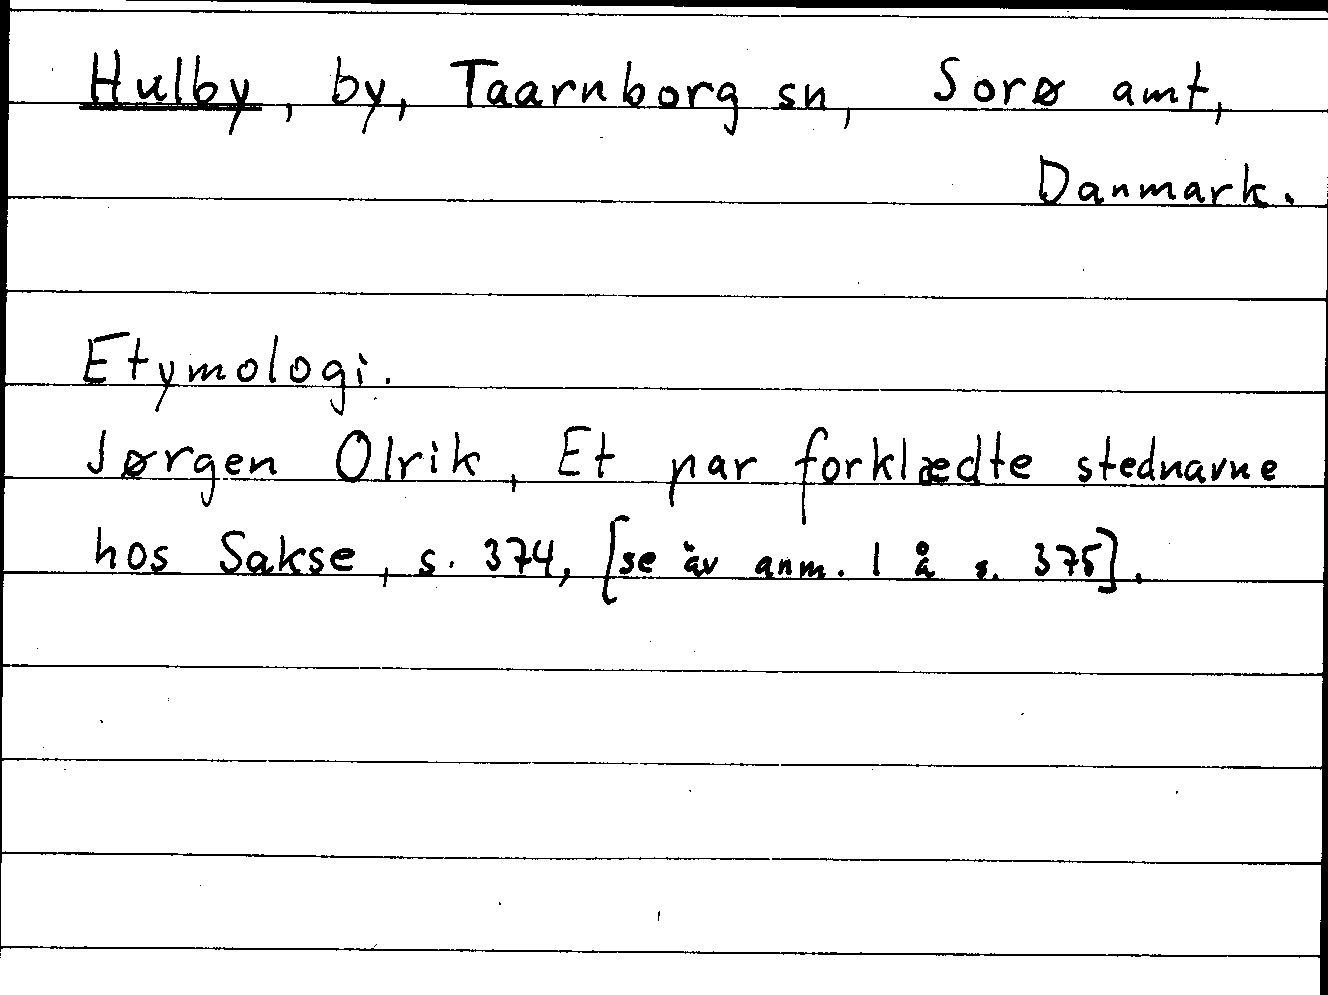 Hulby, by, Taarnborg sn, Sorø amt,
Danmark.
Etymologi.
Jørgen Olrik, Et par forklædte stednavne
hos Sakse, s. 374, [se äv anm. 1 å s. 375].